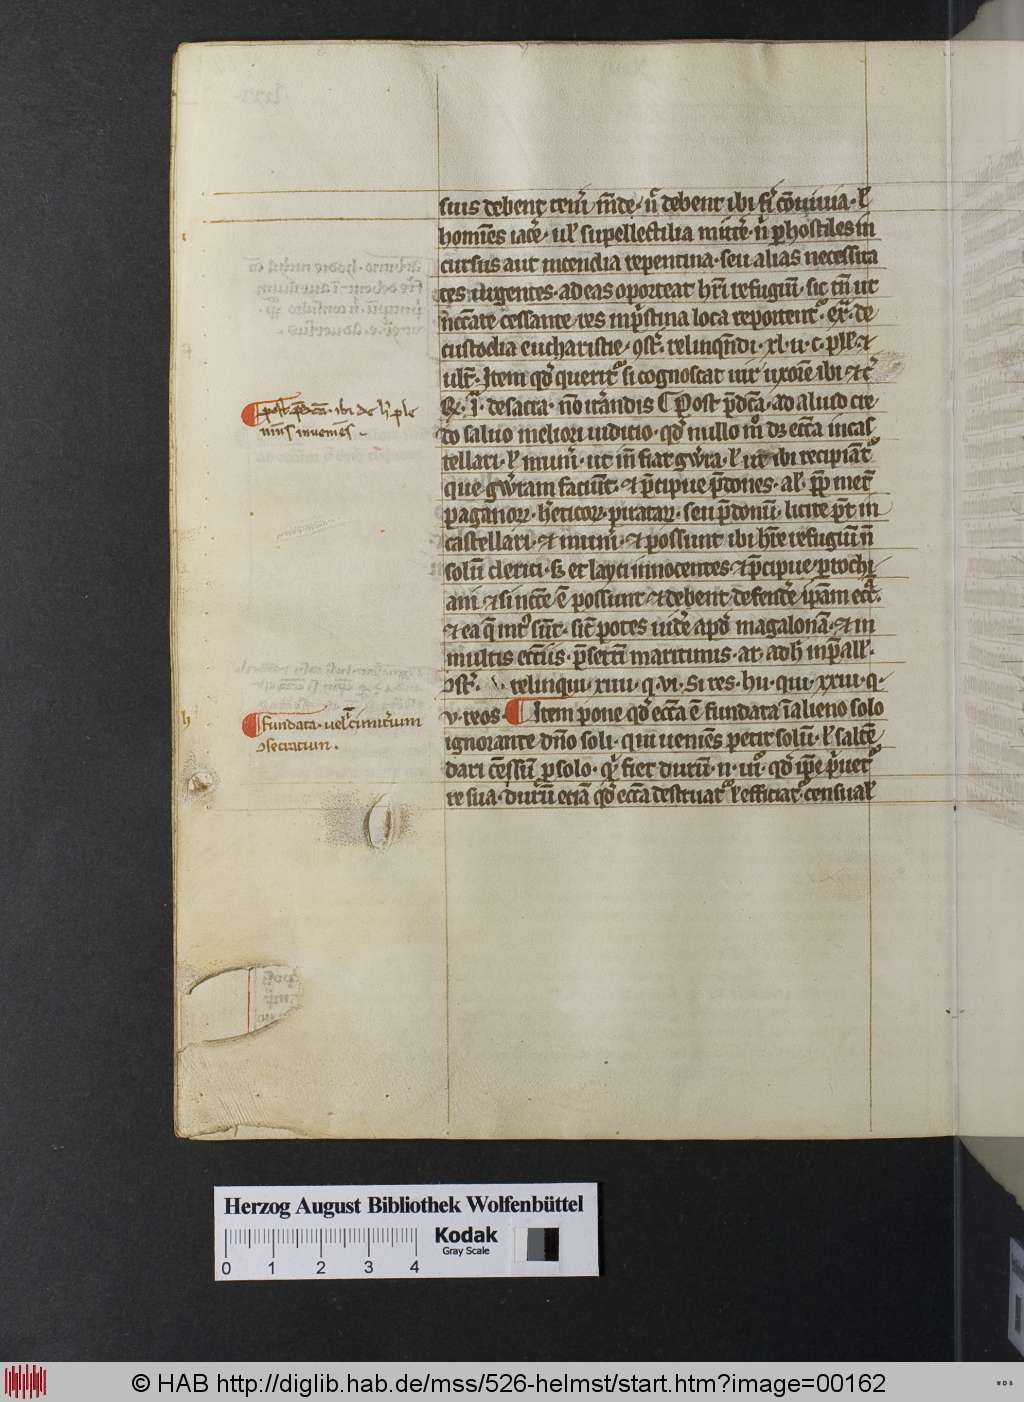 suis debent teneri munde. nec debent ibi fieri conuiuia. uel
homines iacere. uel supellectilia mittere. nisi propter hostiles in
cursus aut incendia repentina. seu alias necessita
tes urgentes. ad eas oporteat haberi refugium. sic tamen ut
necessitate cessante res in pristina loca reportentur. extra. de
custodia eucharistie.
ult. Item quod queritur si cognoscat uir uxorem ibi
de sacra. non iterandis Post ad aliud cre
do saluo meliori iudicio. quod nullo modo ecclesia incas
tellari. uel muniri. ut inde fiat gwerra. uel ut ibi recipiantur
qui gwerram faciunt. et precipue predones. propter metum
paganorum. hereticorum. piratarum. seu predonum. licite potest in
castellari. et muniri. et possunt ibi habere refugium non
solum clerici. sed et layci innocentes. et precipue parrochi
ani et si necesse est possunt et debent defendere ipsam ecclesiam.
et ea que intra sunt. sicut potes uidere apud magalonam. et in
multis ecclesiis. presertim maritimis.
relinqui. xiiii. q. vi. Si res. hii. qui. xxiii. q.
v. reos. Item pone quod ecclesia est fundata in alieno solo
ignorante domino soli. qui ueniens petit solum. uel saltem
dari censum pro solo.
re sua. durum etiam quod ecclesia destruatur uel efficiatur censual
post. ibi de hoc ple
nius inuenies.
fundata. uel cimiterium
consecratum.
Herzog August Bibliothek Wolfenbüttel
Kodak
Gray Scale
0 1 2 3 4
© HAB http://diglib.hab.de/mss/526-helmst/start.htm?image=00162